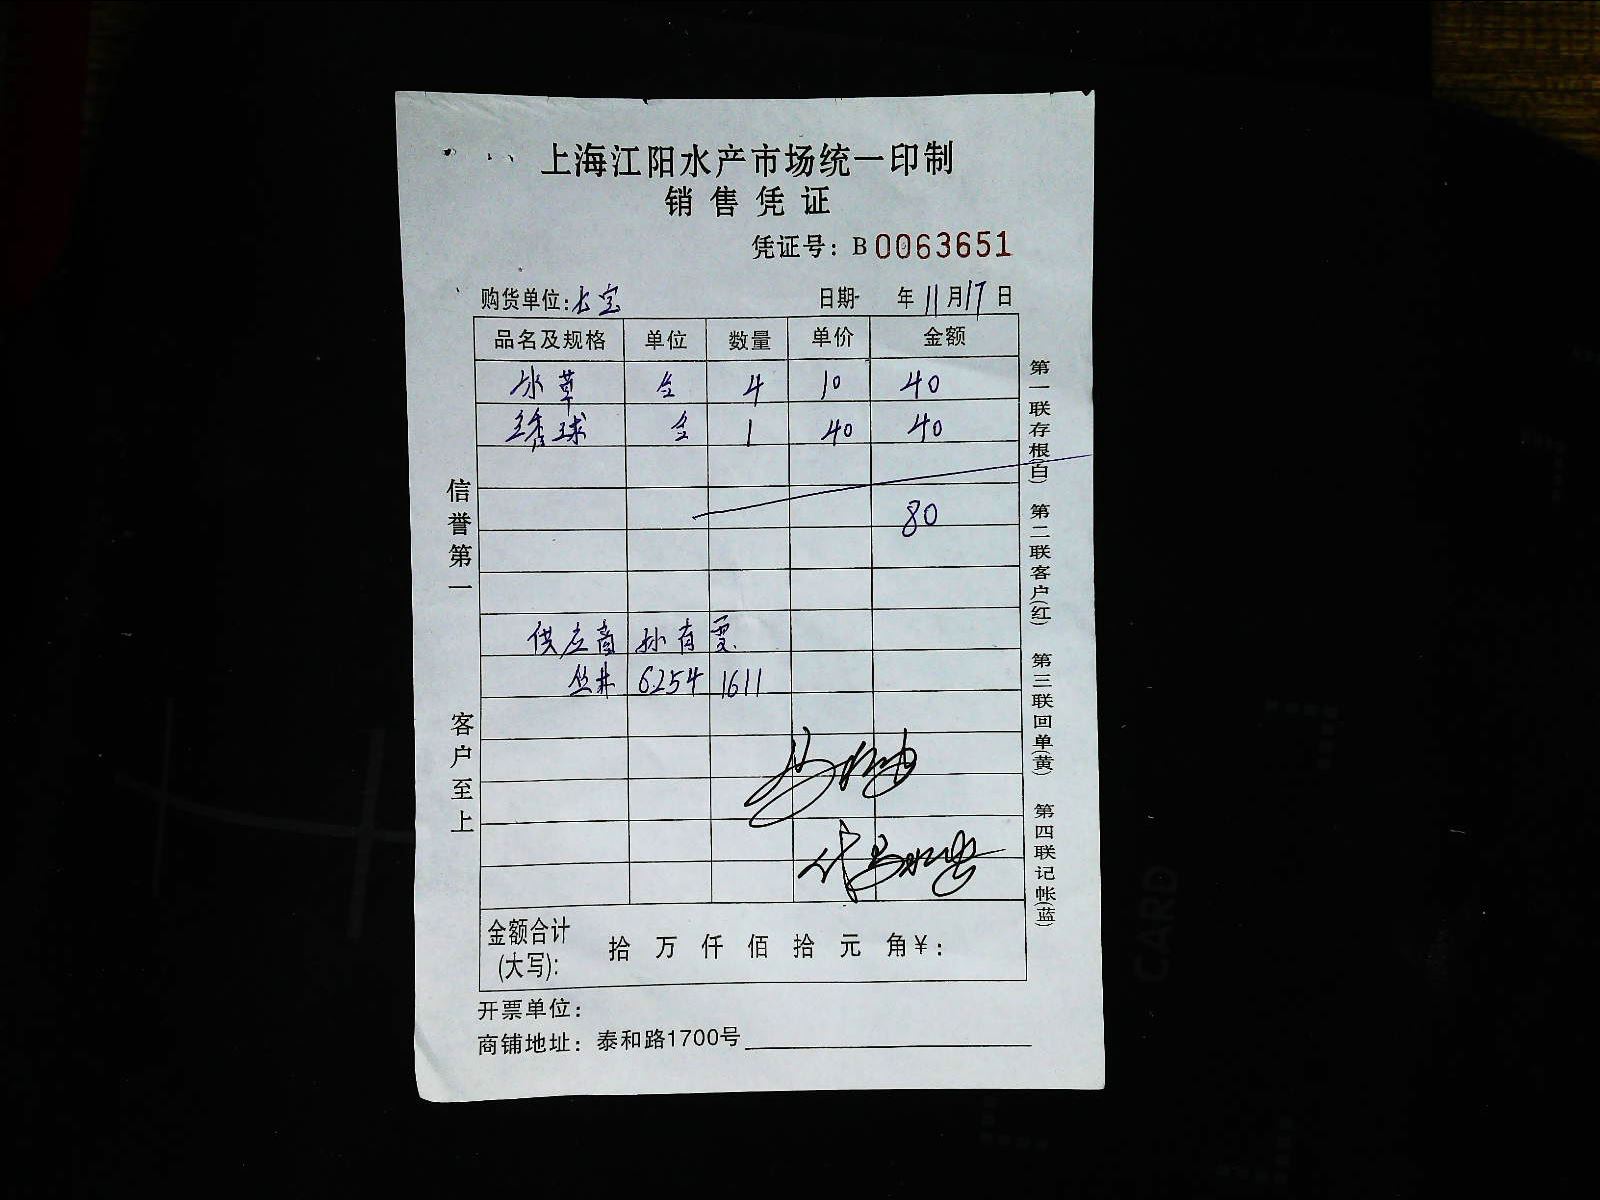 上海江阳水产市场统一印制
销售凭证
凭证号：B0063651
购货单位：七宝
日期 年11月17日
品名及规格 单位 数量 单价 金额
水草 4 10 40
绣球 1 40 40
80
供应商 孙有
丛井 6254 1611
金额合计(大写)： 拾 万 仟 佰 拾 元 角 ¥：
开票单位：
商铺地址：泰和路1700号
信誉第一
客户至上
第一联存根(白)
第二联客户(红)
第三联回单(黄)
第四联记帐(蓝)